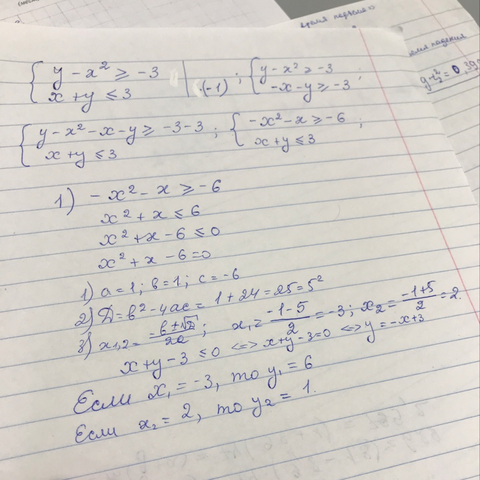 время первая
{ y - x² ≥ -3 | ; { y - x² ≥ -3
x + y ≤ 3 | (-1) -x - y ≥ -3 ;
{ y - x² - x - y ≥ -3 - 3 ; { -x² - x ≥ -6 ;
x + y ≤ 3 x + y ≤ 3
1) -x² - x ≥ -6
x² + x ≤ 6
x² + x - 6 ≤ 0
x² + x - 6 = 0
1) a = 1; b = 1; c = -6
2) D = b² - 4ac = 1 + 24 = 25 = 5²
3) x₁,₂ = (-b ± √D)/2a ; x₁ = (-1-5)/2 = -3; x₂ = (-1+5)/2 = 2.
x + y - 3 ≤ 0 <=> x + y - 3 = 0 <=> y = -x + 3
Если x₁ = -3, то y₁ = 6
Если x₂ = 2, то y₂ = 1.